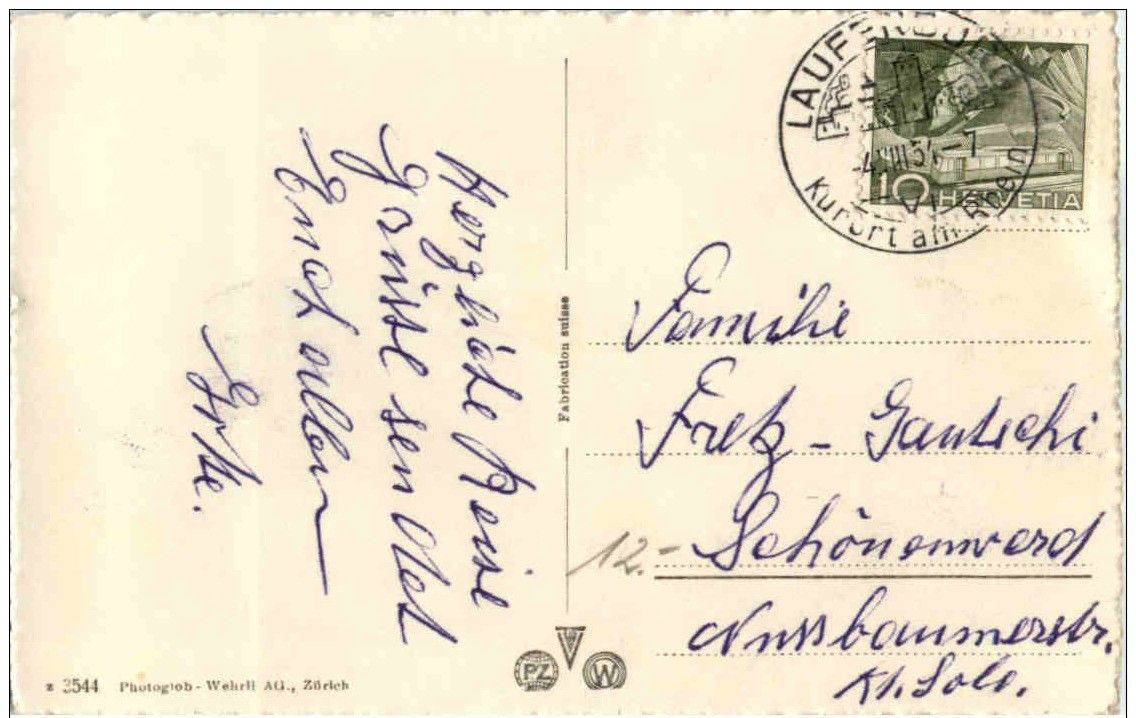 Herzliche Reise
Grüsse sendet
Euch allen
LAUFENBURG
-4.VIII.54.-7
Kurort am Rhein
10 HELVETIA
Familie
Fretz - Gautschi
Schönenwerd
Nussbaumerstr.
Kt. Solo.
12.-
Fabrication suisse
PZ
W
z 3544 Photoglob-Wehrli AG., Zürich